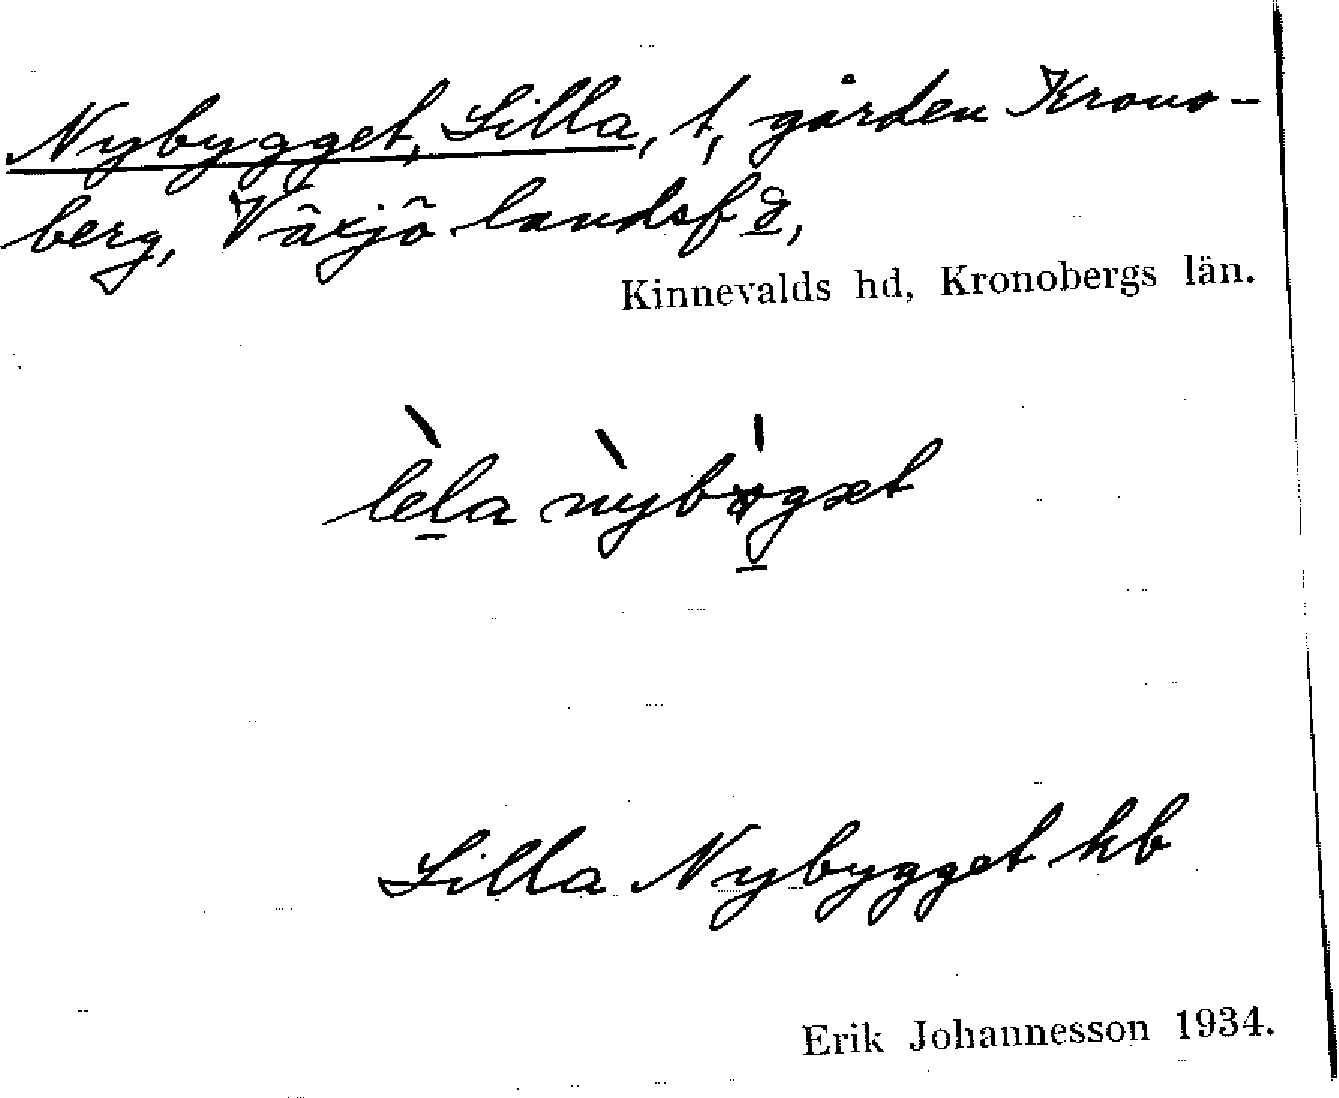 Nybygget, Lilla, t, gården Krono-
berg, Växjö landsf
Kinnevalds hd, Kronobergs län.
Lilla Nybygget hb
Erik Johannesson 1934.